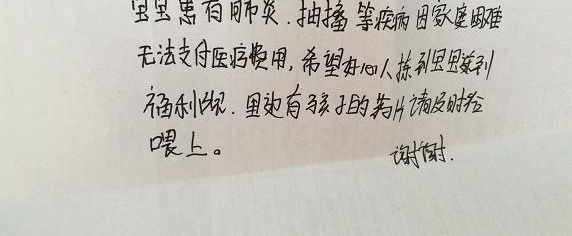 里里患有肺炎.抽搐等疾病因家庭困难
无法支付医疗费用,希望好心人拣到里里送到
福利院.里边有孩子的药片请及时给
喂上。
谢谢.